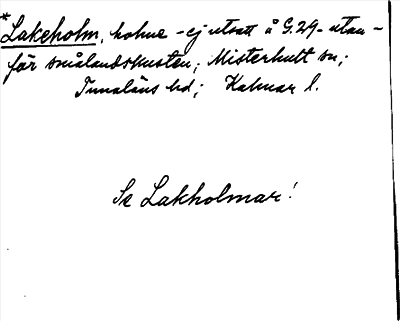 *Lakeholm, holme - ej utsatt å G.29 - utan-
för smålandskusten; Misterhult sn;
Tunaläns hd; Kalmar l.
Se Lakholmar!